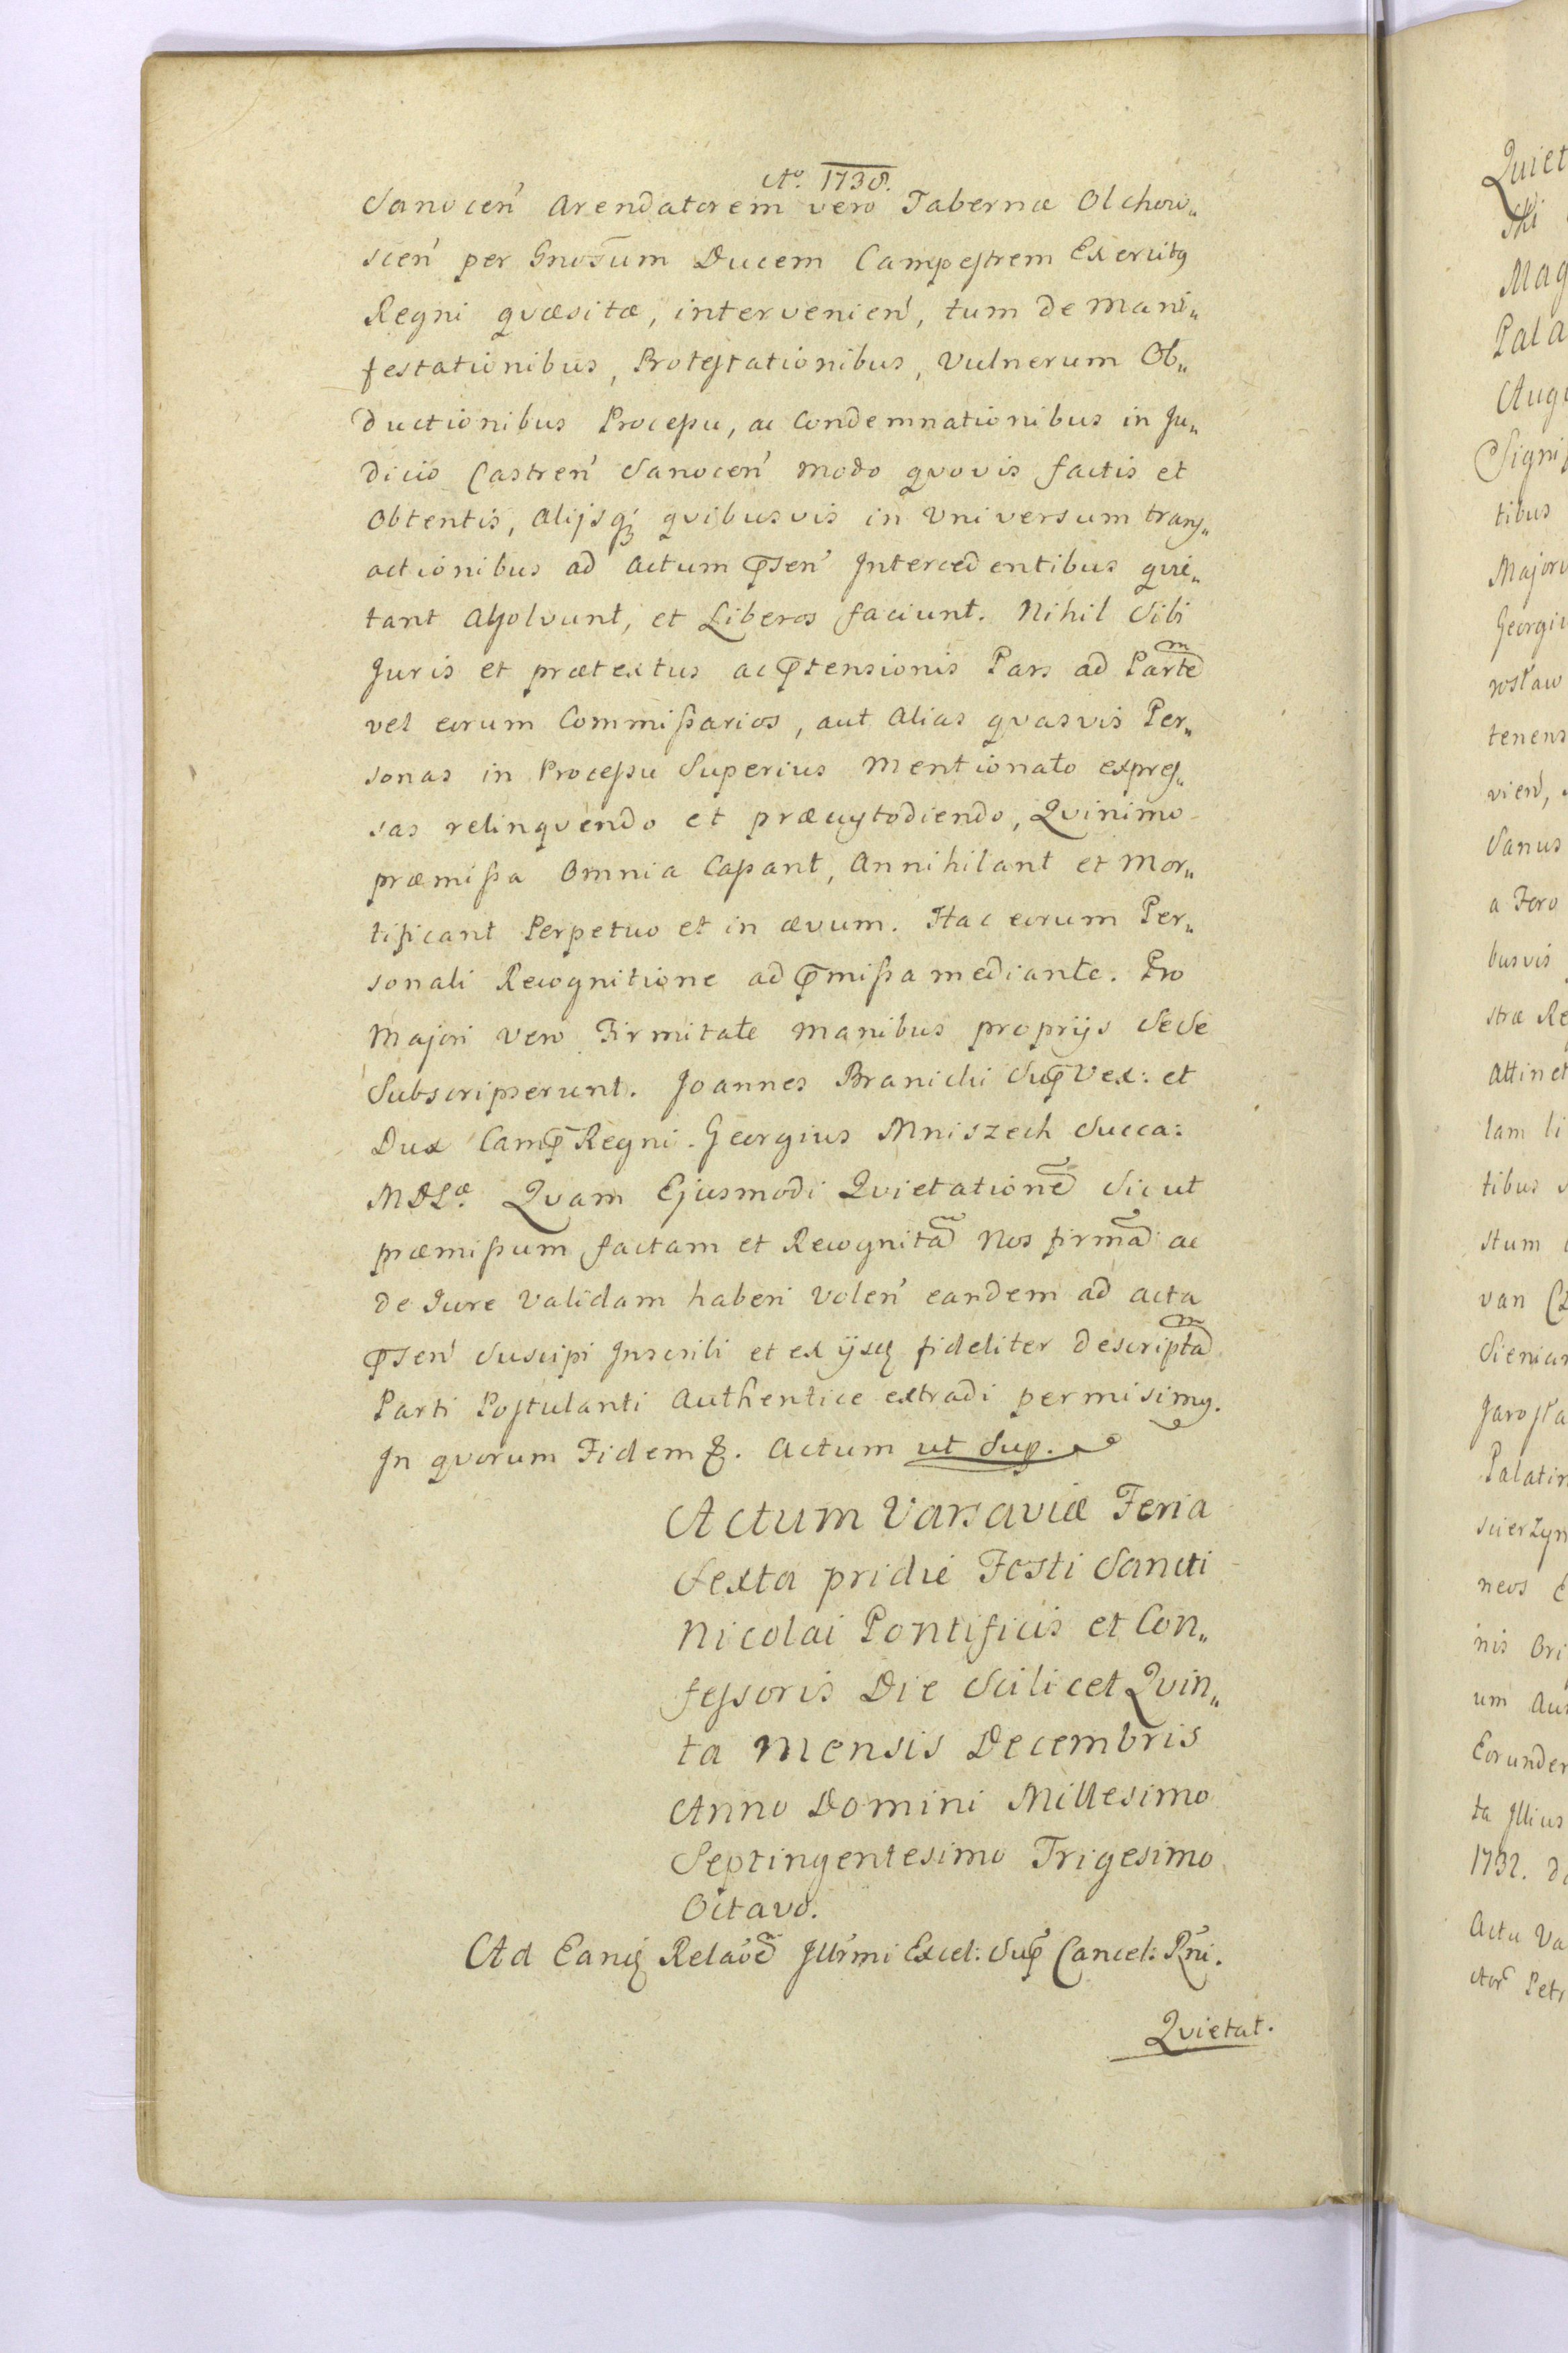 Ao. 1738.
Sanocen̄ Arendatorem vero Tabernæ Olchow„
scen̄ per Gnosūm Ducem Campestrem Exercitus
Regni quæsitæ, intervenien̄, tum de Mani„
festationibus, Protestationibus, Vulnerum Ob„
ductionibus Processu, ac Condemnationibus in Ju„
dicio Castren̄ Sanocen̄ modo quovis factis et
Obtentis, Alijsq; quibusvis in Universum trans„
actionibus ad Actum p̄sen̄ Intercedentibus qvie„
tant Absolvunt, et Liberos faciunt. Nihil Sibi
Juris et prætextus ac p̄tensionis Pars ad Partem
vel eorum Commissarios, aut Alias qvasvis Per„
sonas in Processu Superius Mentionato expres„
sas relinqvendo et præcustodiendo, Qvinimo
præmissa Omnia Cassant, Annihilant et Mor„
tificant Perpetuo et in ævum. Hac eorum Per„
sonali Recognitione ad p̄missa mediante. Pro
Majori vero Firmitate Manibus proprijs Sese
Subscripserunt. Joannes Branicki Sup̄ Vex: et
Dux Camp̄ Regni. Georgius Mniszech Succa:
MDLæ. Qvam Ejusmodi Qvietationem̄ Sicut
præmissum factam et Recognitam̄ Nos firmam̄ ac
de Jure Validam haberi Volen̄ eandem ad Acta
p̄sen̄ Suscipi Inscribi et ex ijsq fideliter descriptam
Parti Postulanti Authentice extradi permisimus.
In qvorum Fidem &. Actum ut Sup.
Actum Varsaviæ Feria
Sexta pridie Festi Sancti
Nicolai Pontificis et Con„
fessoris Die Scilicet Qvin„
ta Mensis Decembris
Anno Domini Millesimo
Septingentesimo Trigesimo
Octavo.
Ad Eanq Relaōē Jllr̄mi Excel: Sup̄ Cancel: Rn̄i.
Qvietat.
Quiet
Mag
Pala
Augu
Signi
tibus
Majoru
Georgiu
rosław
tenens
vien̄,
Sanus
a Foro
busvis
stræ Re
Attinet
lam li
tibus
stum
van
Sienia
Jarosła
Palatin
scierzyn
neos
nis Ori
um Au
Eorunder
ta Illius
1732. d
Actu Va
Petr